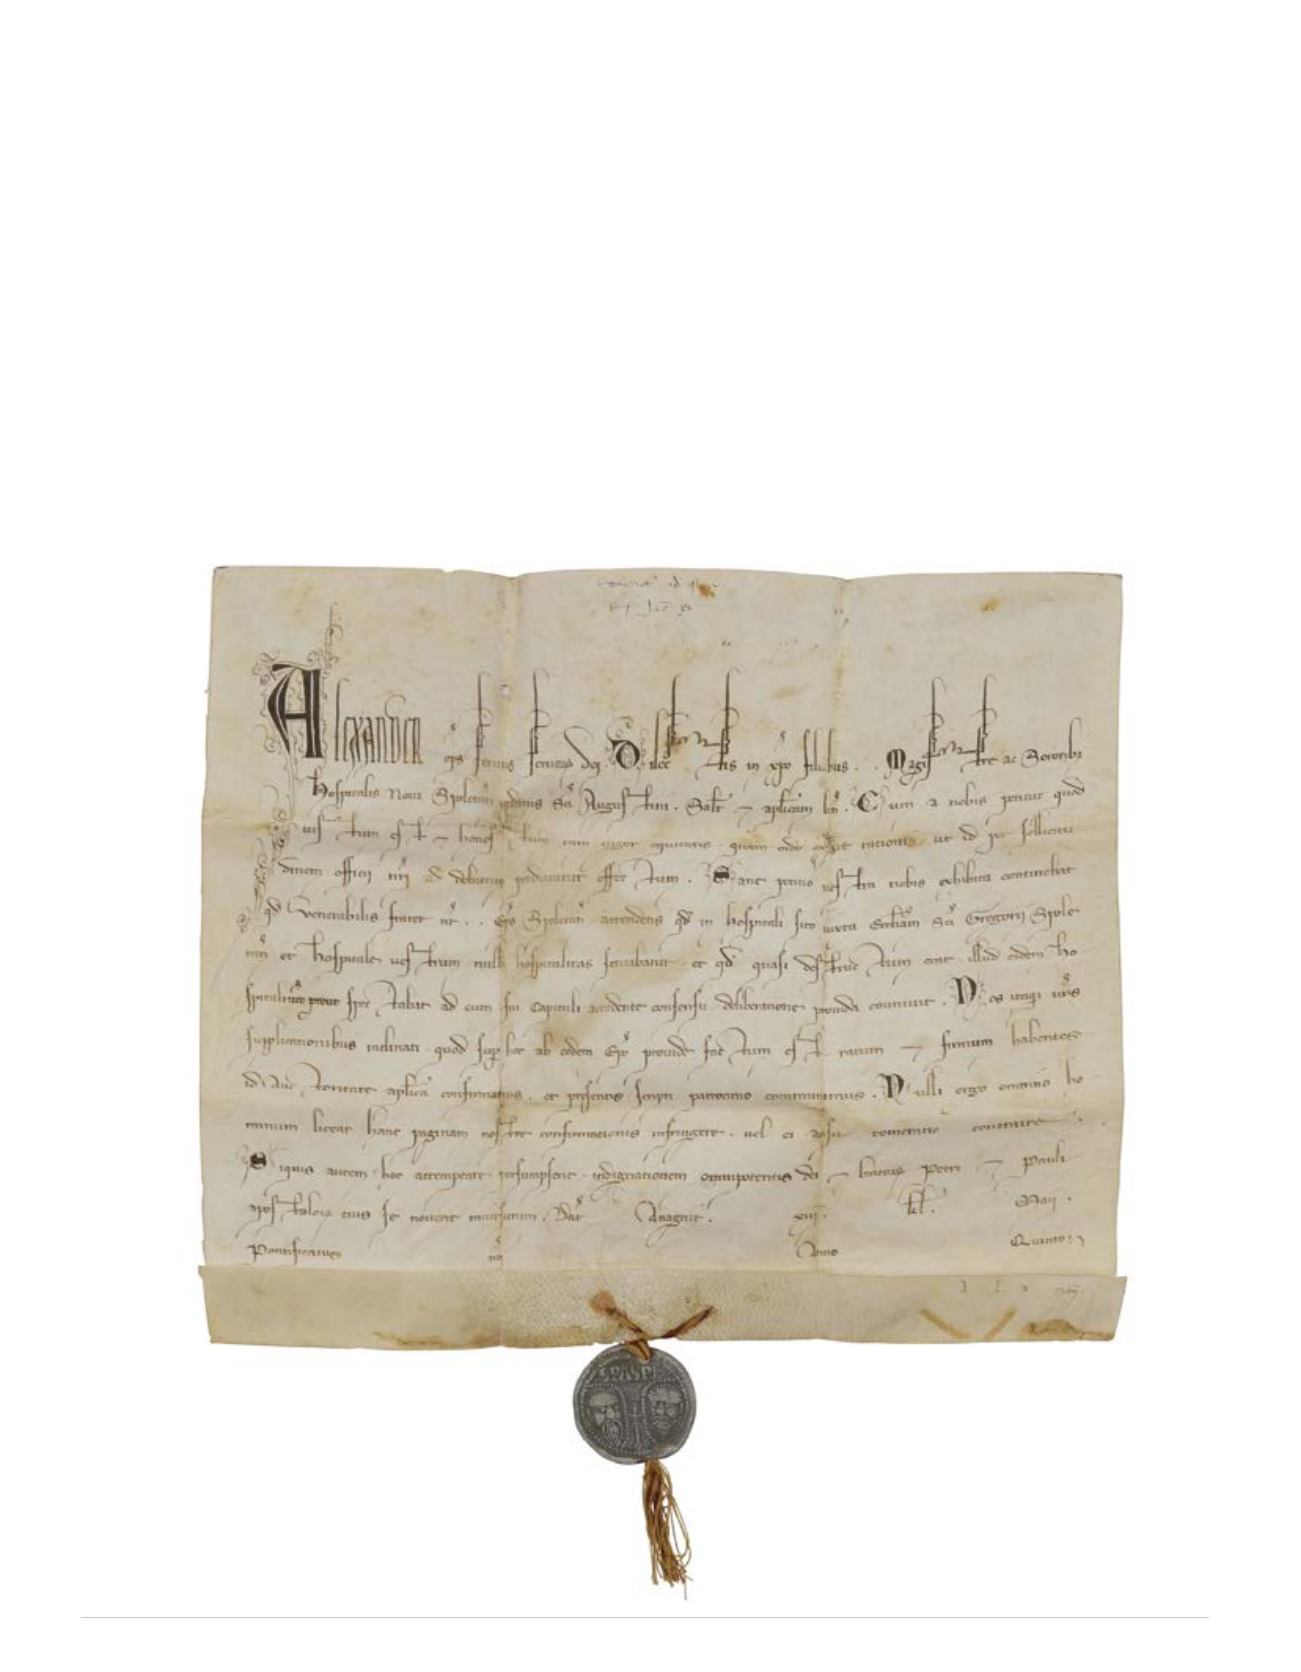 Alexander ep̄s servus servoꝝ dei. Dilectis in xp̄o filiabus . . Magistre ac Sororibꝫ
hospitalis Novi Spoletan̄ ordinis Sc̄i Augustini. Salt̄ ⁊ aplicam bn̄. Cum a nobis petitur quod
iustum est ⁊ honestum tam vigor equitatis quam ordo exigit rationis ut id per sollicitu
dinem officij nr̄i ad debitum perducatur effectum. Sane petitio vestra nobis exhibita continebat
qd̄ Venerabilis frater nr̄ . . Ep̄s Spoletan̄ attendens qd̄ in hospitali sito iuxta Eccliam Sc̄i Gregorij Spole
tan̄ et hospitale vestrum nulla hospitalitas servabatur et qd̄ quasi destructum erat illud eidem ho
spitali vr̄o prout spectabat ad eum sui Capituli accedente consensu deliberatione provida counivit. Nos itaqꝫ vr̄is
supplicationibus inclinati quod super hoc ab eodem Ep̄o provide factum est ratum ⁊ firmum habentes
id auctoritate aplica confirmamus. et presentis scripti patrocinio communimus. Nulli ergo omnino ho
minum liceat hanc paginam nostre confirmationis infringere. vel ei ausu temerario contraire.
Siquis autem hoc attemptare presumpserit indignationem omnipotentis dei ⁊ beatoꝝ Petri ⁊ Pauli
apostoloꝝ eius se noverit incursurum. Dat̄ Anagnie. viij. kl̄. Maij.
Pontificatus nr̄i Anno Quinto
SPASPE